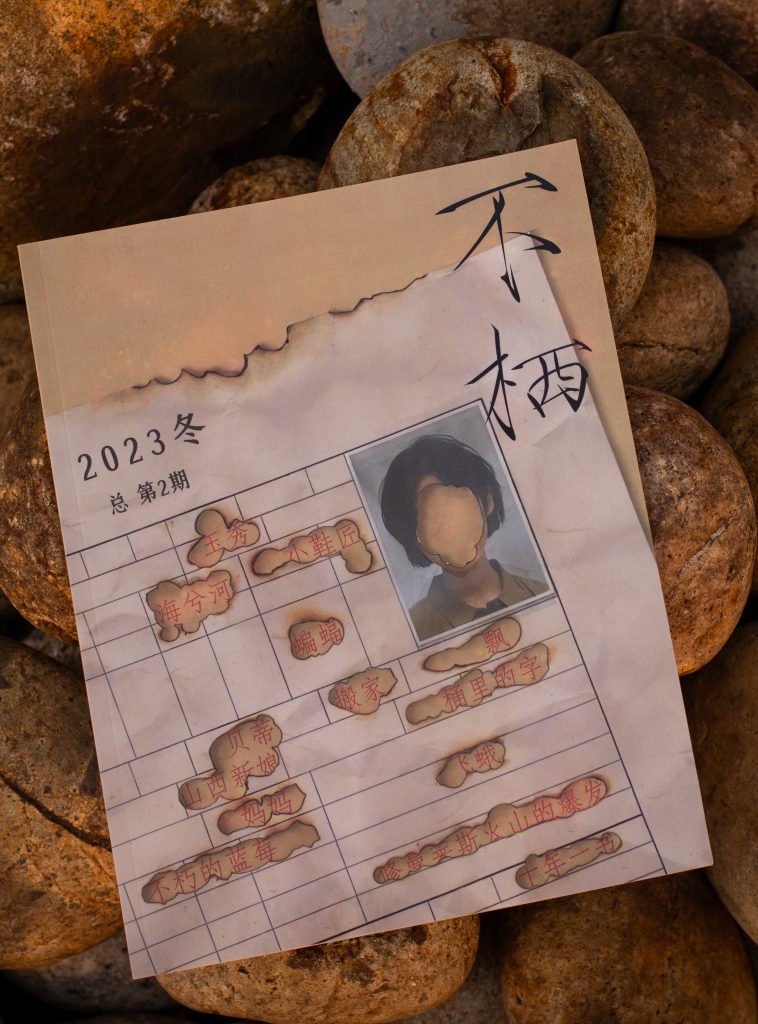 不栖
2023冬
总 第2期
玉秀
小鞋匠
海兮河
蝙蝠
飘
搬家
桶里的字
贝蒂
山西新娘
飞蛾
妈妈
不朽的蓝莓
修鲁莱斯火山的爆发
十年一书